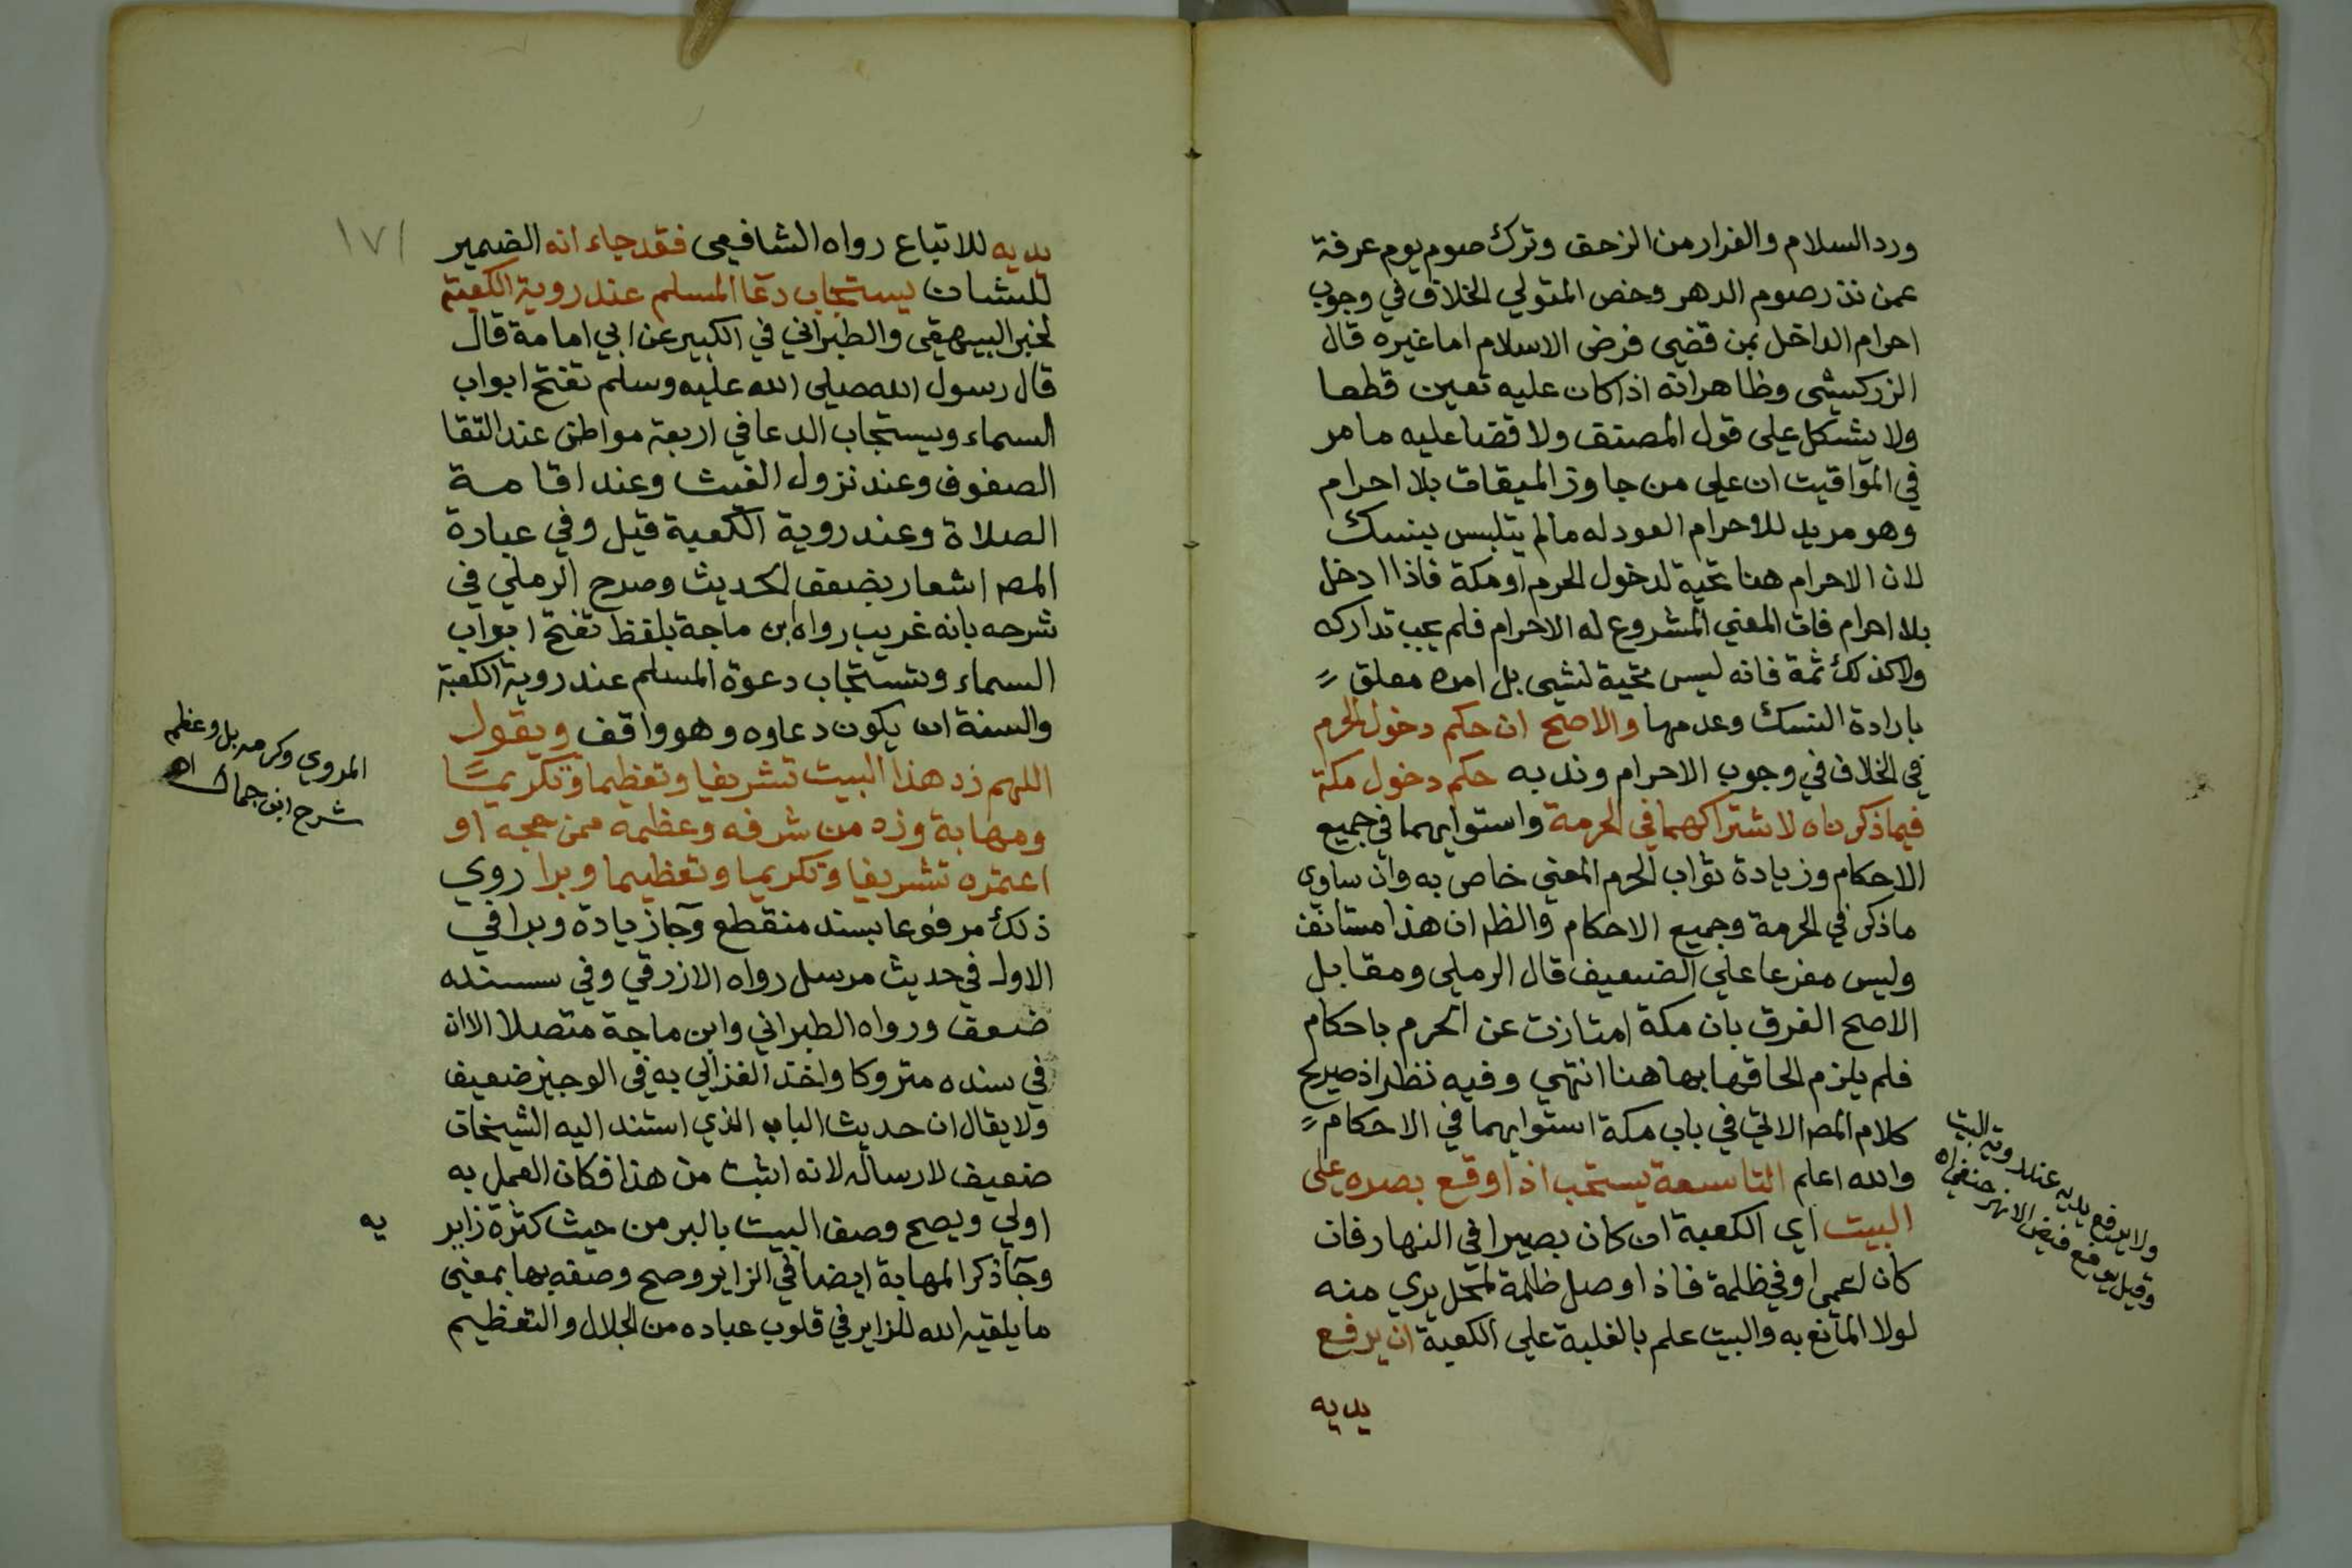 ورد السلام والفرار من الزحف وترك صوم يوم عرفة
عمن نذر صوم الدهر وخص المتولي الخلاف في وجوب
احرام الداخل بمن قضى فرض الاسلام اما غيره قال
الزركشي وظاهر انه اذا كان عليه تعين قطعا
ولا يشكل على قول المصنف ولا قضا عليه ما مر
في المواقيت ان على من جاوز الميقات بلا احرام
وهو مريد للاحرام العود له مالم يتلبس بنسك
لان الاحرام هنا تحية لدخول الحرم او مكة فاذا ادخل
بلا احرام فات المعني المشروع له الاحرام فلم يجب تداركه
ولا كذلك ثمة فانه ليس تحية لشي بل امره معلق
بارادة النسك وعدمها والاصح ان حكم دخول الحرم
في الخلاف في وجوب الاحرام وندبه حكم دخول مكة
فيما ذكرناه لاشتراكهما في الحرمة واستوايهما في جميع
الاحكام وزيادة ثواب الحرم المعني خاص به وان ساوى
ماذكر في الحرمة وجميع الاحكام والظ ان هذا مستانف
وليس مفرعا على الضعيف قال الرملي ومقابل
الاصح الفرق بان مكة امتازت عن الحرم باحكام
فلم يلزم الحاقها بها هنا انتهي وفيه نظر اذ صريح
كلام المص الاتي في باب مكة استوايهما في الاحكام
والله اعلم التاسعة يستحب اذا وقع بصره على
البيت اي الكعبة ان كان بصيرا في النهار فان
كان لعمى او في ظلمة فاذا وصل ظلمة لمحل يري منه
لولا المانع به والبيت علم بالغلبة على الكعبة ان يرفع
يديه
ولا يرفع يديه عند روية البيت
وقيل يرفع فيض الانهر حنفي اه
١٧١
يديه للاتباع رواه الشافعي فقد جاء انه الضمير
للشان يستجاب دعا المسلم عند روية الكعبة
لخبر البيهقي والطبراني في الكبير عن ابي امامة قال
قال رسول الله صلى الله عليه وسلم تفتح ابواب
السماء ويستجاب الدعا في اربعة مواطن عند التقا
الصفوف وعند نزول الغيث وعند اقامة
الصلاة وعند روية الكعبة قيل وفي عبارة
المص اشعار بضعف الحديث وصرح الرملي في
شرحه بانه غريب رواه ابن ماجة بلفظ تفتح ابواب
السماء وتستجاب دعوة المسلم عند روية الكعبة
والسنة ان يكون دعاوه وهو واقف ويقول
اللهم زد هذا البيت تشريفا وتعظيما وتكريما
ومهابة وزد من شرفه وعظمه ممن حجه او
اعتمره تشريفا وتكريما وتعظيما وبرا روي
ذلك مرفوعا بسند منقطع وجاز زيادة وبرا في
الاول في حديث مرسل رواه الازرقي وفي سنده
ضعف ورواه الطبراني وابن ماجة متصلا الا ان
في سنده متروكا واخذ الغزالي به في الوجيز ضعيف
ولا يقال ان حديث الباب الذي استند اليه الشيخان
ضعيف لارساله لانه اثبت من هذا فكان العمل به
اولي ويصح وصف البيت بالبر من حيث كثرة زاير
يه
وجا ذكر المهابة ايضا في الزاير وصح وصفه بها بمعني
ما يلقيه الله للزاير في قلوب عباده من الجلال والتعظيم
المروي وكرمه بل وعظمه
شرح ابن جمال اه